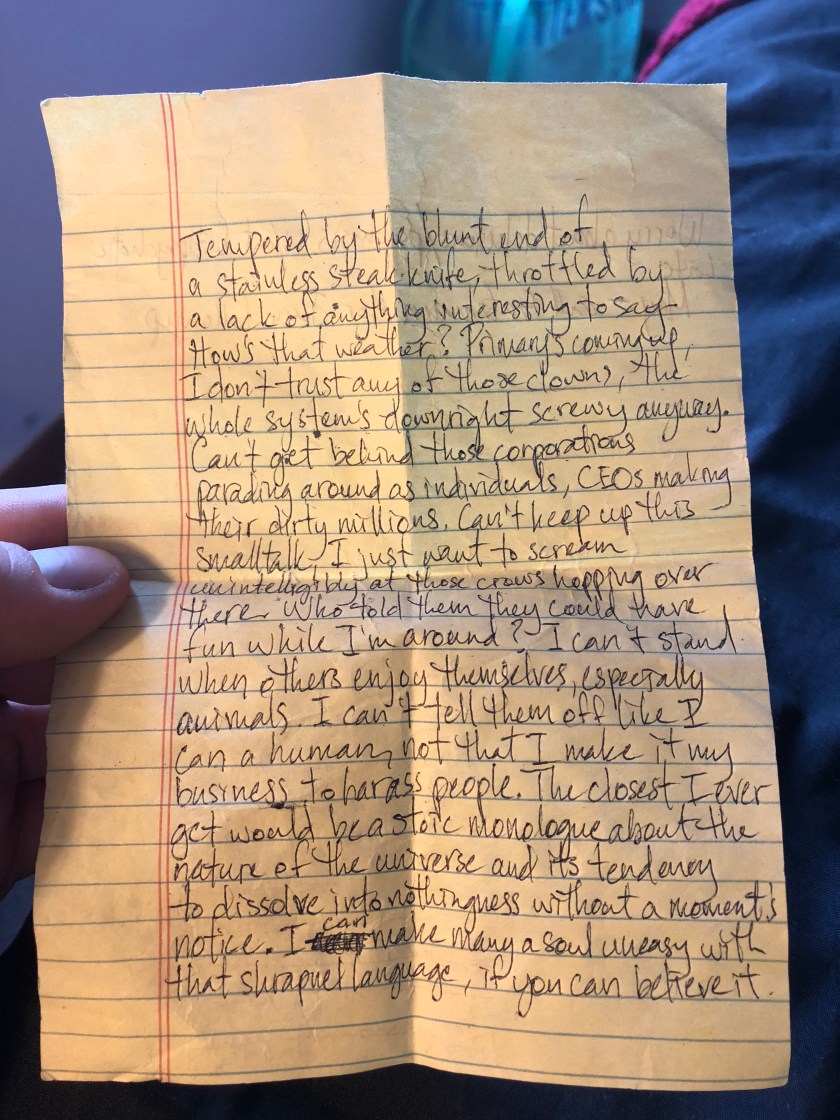 Tempered by the blunt end of
a stainless steak knife, throttled by
a lack of anything interesting to say
How's that weather? Primary's coming up,
I don't trust any of those clowns, the
whole system's downright screwy anyway.
Can't get behind those corporations
parading around as individuals, CEOs making
their dirty millions. Can't keep up this
smalltalk, I just want to scream
unintelligibly at those crows hopping over
there. Who told them they could have
fun while I'm around? I can't stand
when others enjoy themselves, especially
animals. I can't tell them off like I
can a human, not that I make it my
business to harass people. The closest I ever
get would be a stoic monologue about the
nature of the universe and its tendency
to dissolve into nothingness without a moment's
notice. I can make many a soul uneasy with
that shrapnel language, if you can believe it.